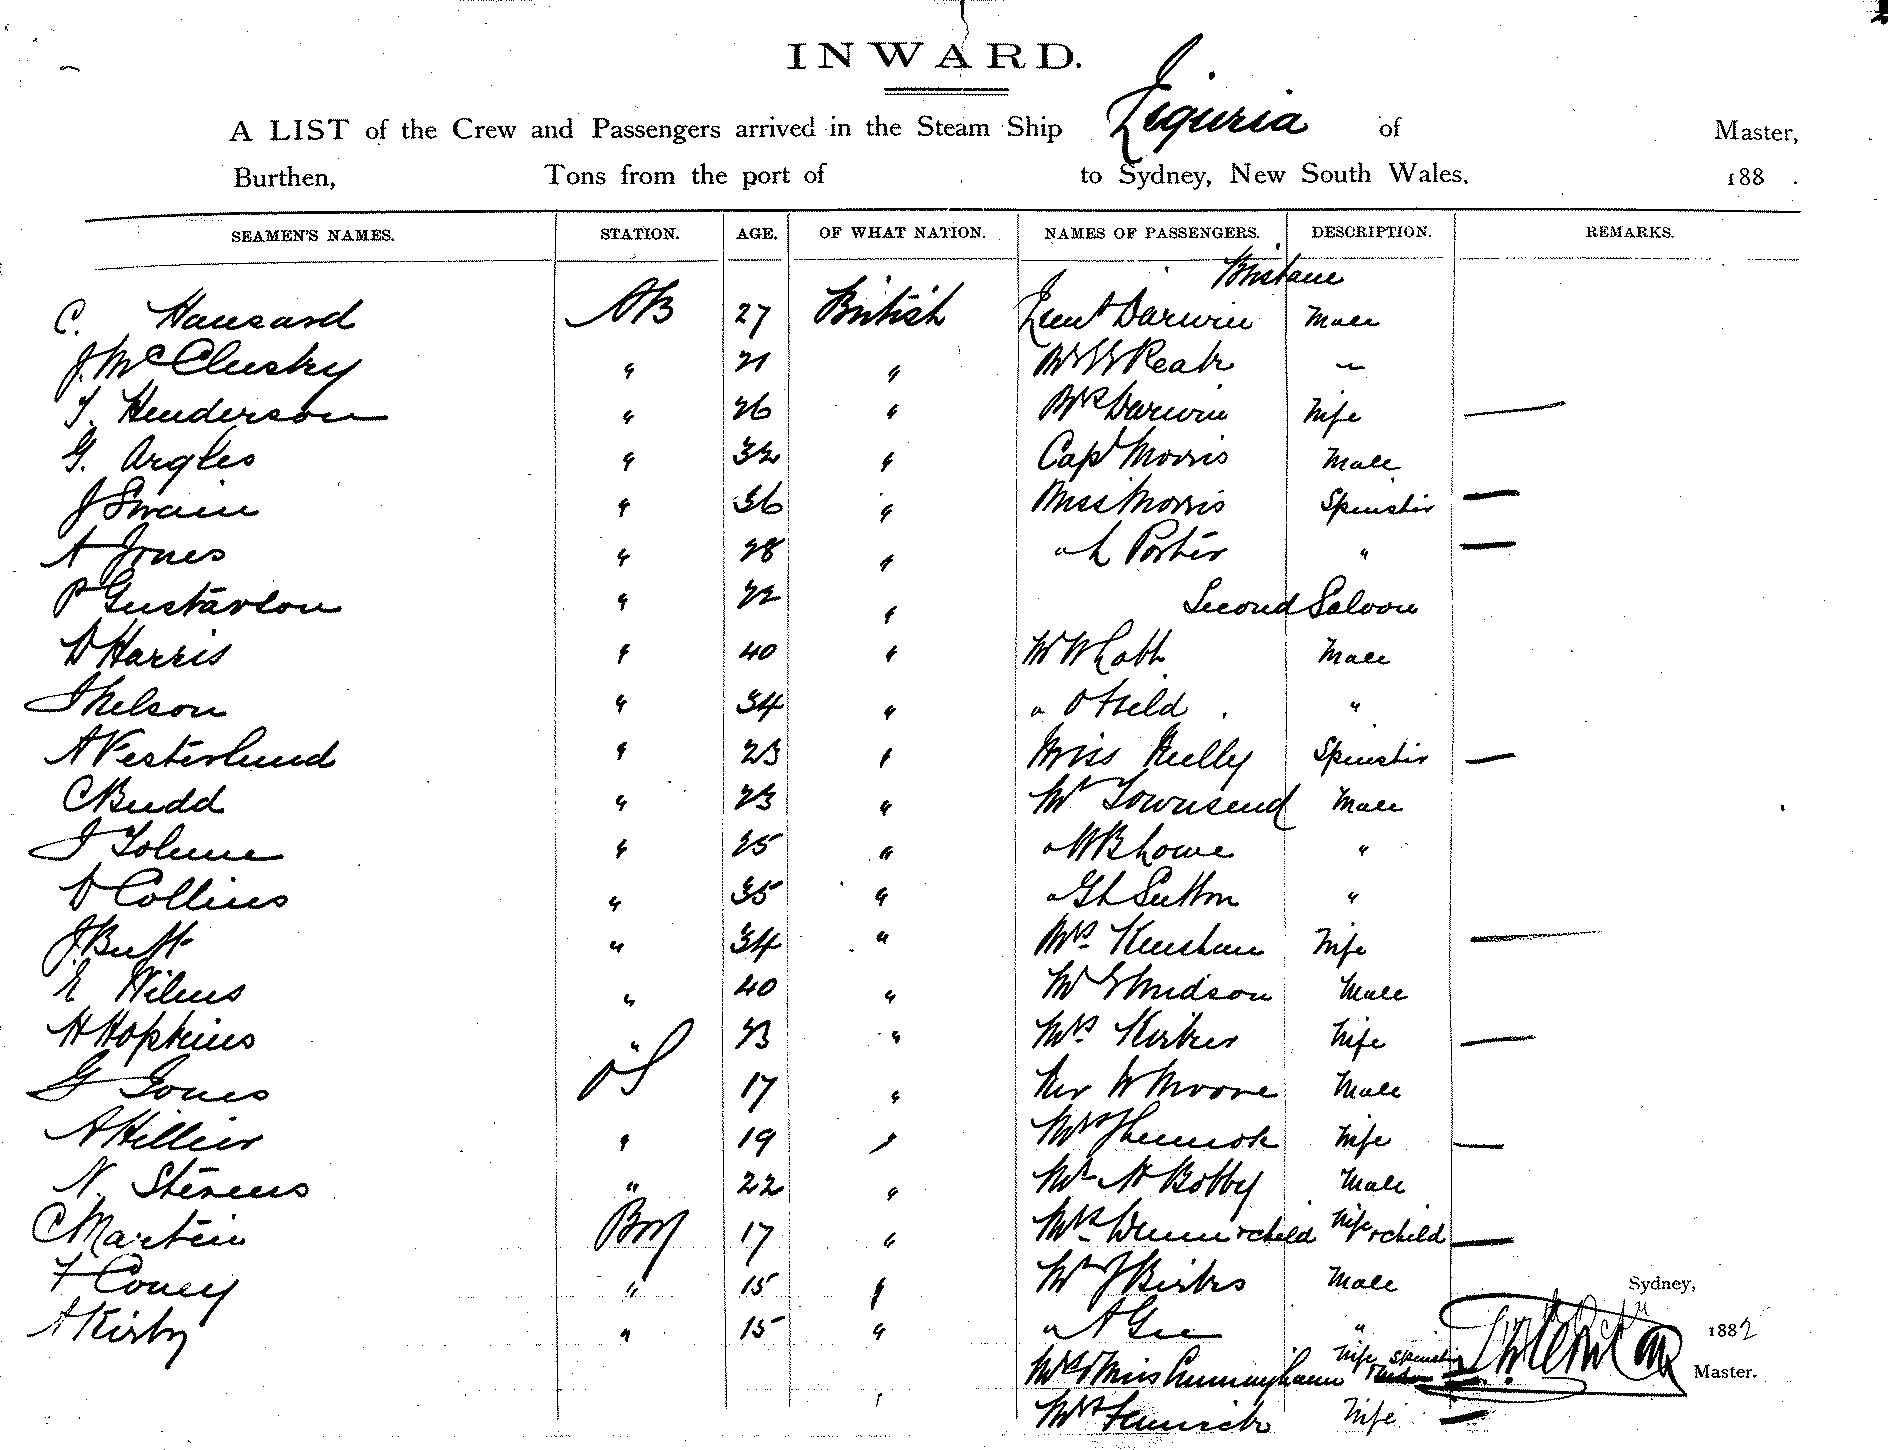 INWARD.
A LIST of the Crew and Passengers arrived in the Steam Ship Liguria of Master,
Burthen, Tons from the port of to Sydney, New South Wales, 188 .
SEAMEN'S NAMES. STATION. AGE. OF WHAT NATION. NAMES OF PASSENGERS. DESCRIPTION. REMARKS.
Brisbane
C. Hansard AB 27 British Lieut Darwin Male
J. McClusky " 21 " Mr —
T. Henderson " 26 " Mrs Darwin Wife —
G. Argles " 32 " Capt Morris Male
J Swain " 36 " Miss Morris Spinster —
A Jones " 28 " " L Porter " —
P Gustavson " 22 " Second Saloon
D Harris " 40 " Mr W Labb Male
J Nelson " 34 " " O Held "
A Vesterlund " 23 " Miss Spinster —
C Budd " 23 " Mr Townsend Male
J " 25 " " W B Lowe "
D Collins " 35 " " G L Sutton "
J. Butt " 34 " Mrs Wife —
E Wilms " 40 " Mr Male
H Hopkins " 23 " Mrs Wife —
G Jones OS 17 " Rev W Moore Male
A Hillier " 19 " Mrs Wife —
N. Stevens " 22 " Mr H Bobby Male
C Martin Boy 17 " Mrs + child Wife + child —
F Coney " 15 " Mr J Male
A Kirby " 15 " " A Gee "
Mrs & Miss Cunningham Wife Spinster —
Mrs Fenwick Wife —
Sydney,
1882
Master.